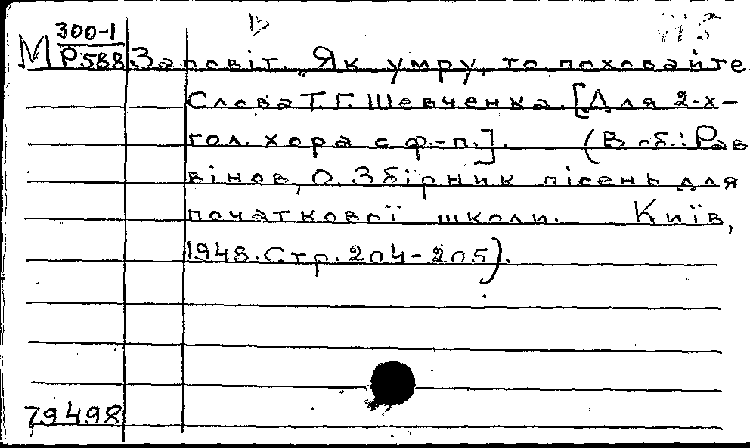 М 300-1
Р588 Заповіт. „Як умру, то поховайте
Слова Т.Г. Шевченка. [Для 2-х-
гол. хора с ф.-п.]. (В сб.: Рав
вінов, О. Збірник пісень для
початкової школи. Київ,
1948. Стр. 204-205).
79498